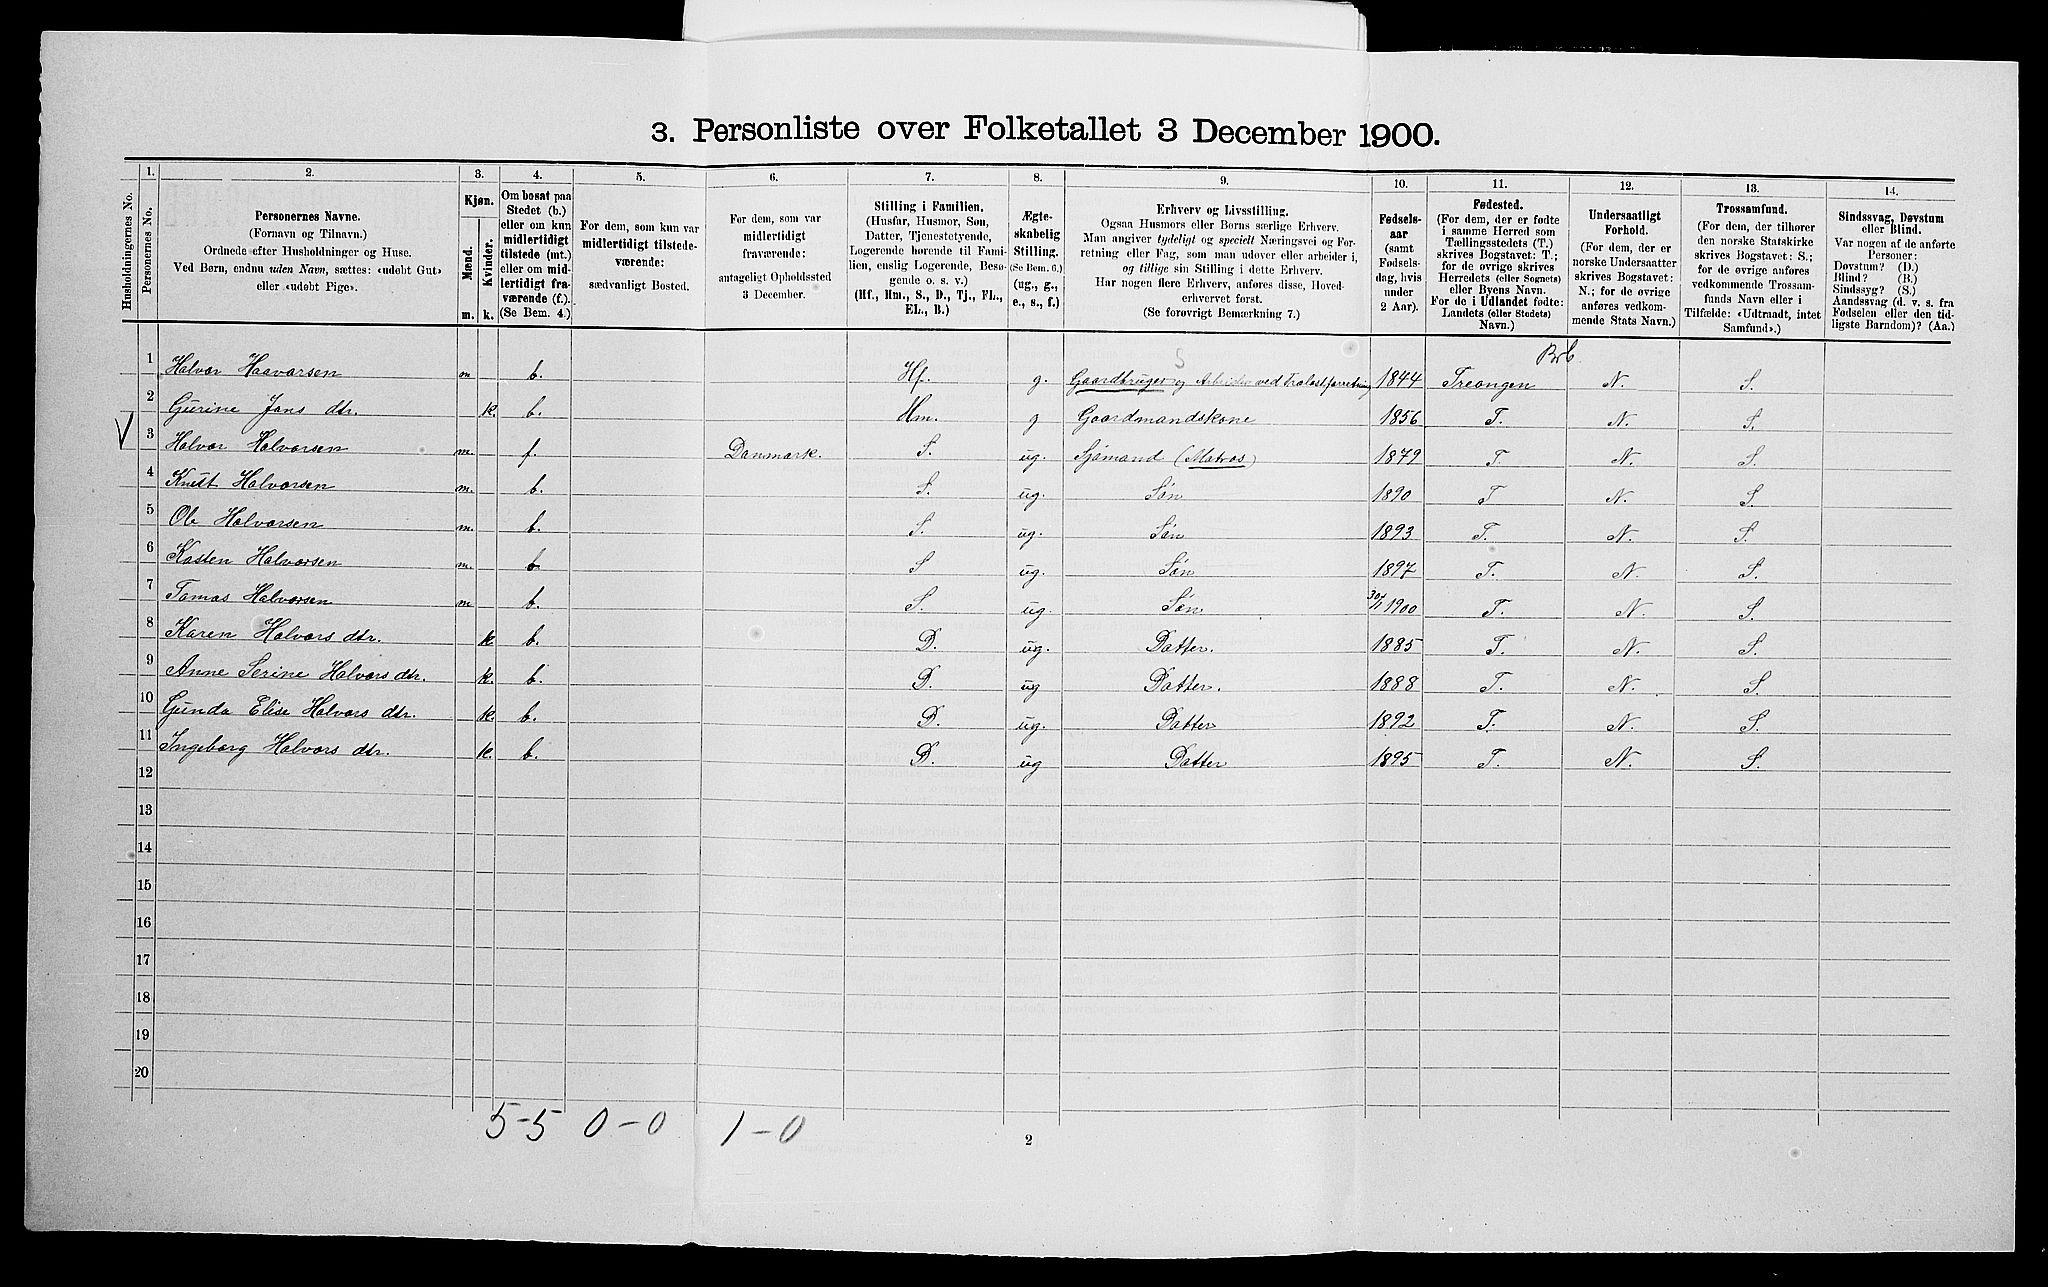 3. Personliste over Folketallet 3 December 1900.
Husholdningernes No.
1.
Personernes No.
2.
Personernes Navne.
(Fornavn og Tilnavn.)
Ordnede efter Husholdninger og Huse.
Ved Børn, endnu uden Navn, sættes: «udøbt Gut»
eller «udøbt Pige».
3.
Kjøn.
Mænd.
Kvinder.
m. k.
4.
Om bosat paa
Stedet (b.)
eller om kun
midlertidigt
tilstede (mt.)
eller om mid-
lertidigt fra-
værende (f.).
(Se Bem. 4.)
5.
For dem, som kun var
midlertidigt tilstede-
værende:
sædvanligt Bosted.
6.
For dem, som var
midlertidigt
fraværende:
antageligt Opholdssted
3 December.
7.
Stilling i Familien.
(Husfar, Husmor, Søn,
Datter, Tjenestetyende,
Logerende hørende til Fami-
lien, enslig Logerende, Besø-
gende o. s. v.)
(Hf., Hm., S., D., Tj., FL.,
EL., B.)
8.
Ægte-
skabelig
Stilling.
(Se Bem. 6.)
(ug., g.,
e., s., f.)
9.
Erhverv og Livsstilling.
Ogsaa Husmors eller Børns særlige Erhverv.
Man angiver tydeligt og specielt Næringsvei og For-
retning eller Fag, som man udøver eller arbeider i,
og tillige sin Stilling i dette Erhverv.
Har nogen flere Erhverv, anføres disse, Hoved-
erhvervet først.
(Se forøvrigt Bemærkning 7.)
10.
Fødsels-
aar
(samt
Fødsels-
dag, hvis
under
2 Aar).
11.
Fødested.
(For dem, der er fødte
i samme Herred som
Tællingsstedets (T.)
skrives Bogstavet: T.;
for de øvrige skrives
Herredets (eller Sognets)
eller Byens Navn.
For de i Udlandet fødte:
Landets (eller Stedets)
Navn.)
12.
Undersaatligt
Forhold.
(For dem, der er
norske Undersaatter
skrives Bogstavet:
N.; for de øvrige
anføres vedkom-
mende Stats Navn.)
13.
Trossamfund.
(For dem, der tilhører
den norske Statskirke
skrives Bogstavet: S.;
for de øvrige anføres
vedkommende Trossam-
funds Navn eller i
Tilfælde: «Udtraadt, intet
Samfund».)
14.
Sindssvag, Døvstum
eller Blind.
Var nogen af de anførte
Personer:
Døvstum? (D.)
Blind? (B.)
Sindssyg? (S.)
Aandssvag (d. v. s. fra
Fødselen eller den tid-
ligste Barndom)? (Aa.)
5
1 Halvor Haavorsen m b. Hf. g. Gaardbruger og Arbeider ved Trælastforretning 1844 Treongen N. S.
2 Gurine Jans dtr. k. b. Hm. g Gaardmandskone 1856 T. N. S.
V 3 Halvor Halvorsen m. f. Danmark. S. ug. Sjømand (Matros) 1879 T N. S.
4 Knut Halvorsen m. b. S. ug. Søn 1890 T N. S.
5 Ole Halvorsen m. b. S. ug. Søn 1893 T. N. S.
6 Kasten Halvorsen m. b S ug. Søn 1897 T. N. S.
7 Tomas Halvorsen m b. S. ug. Søn 1900 T. N. S.
8 Karen Halvors dtr. k b. D. ug. Datter. 1885 T. N. S.
9 Anne Serine Halvors dtr. k. b. D. ug Datter. 1888 T. N. S.
10 Gunda Elise Halvors dtr. k. b. D. ug. Datter 1892 T. N. S.
11 Ingeborg Halvors dtr. k. b. D. ug Datter 1895 T. N. S.
12
13
14
15
16
17
18
19
20
5-5 0-0 1-0
2